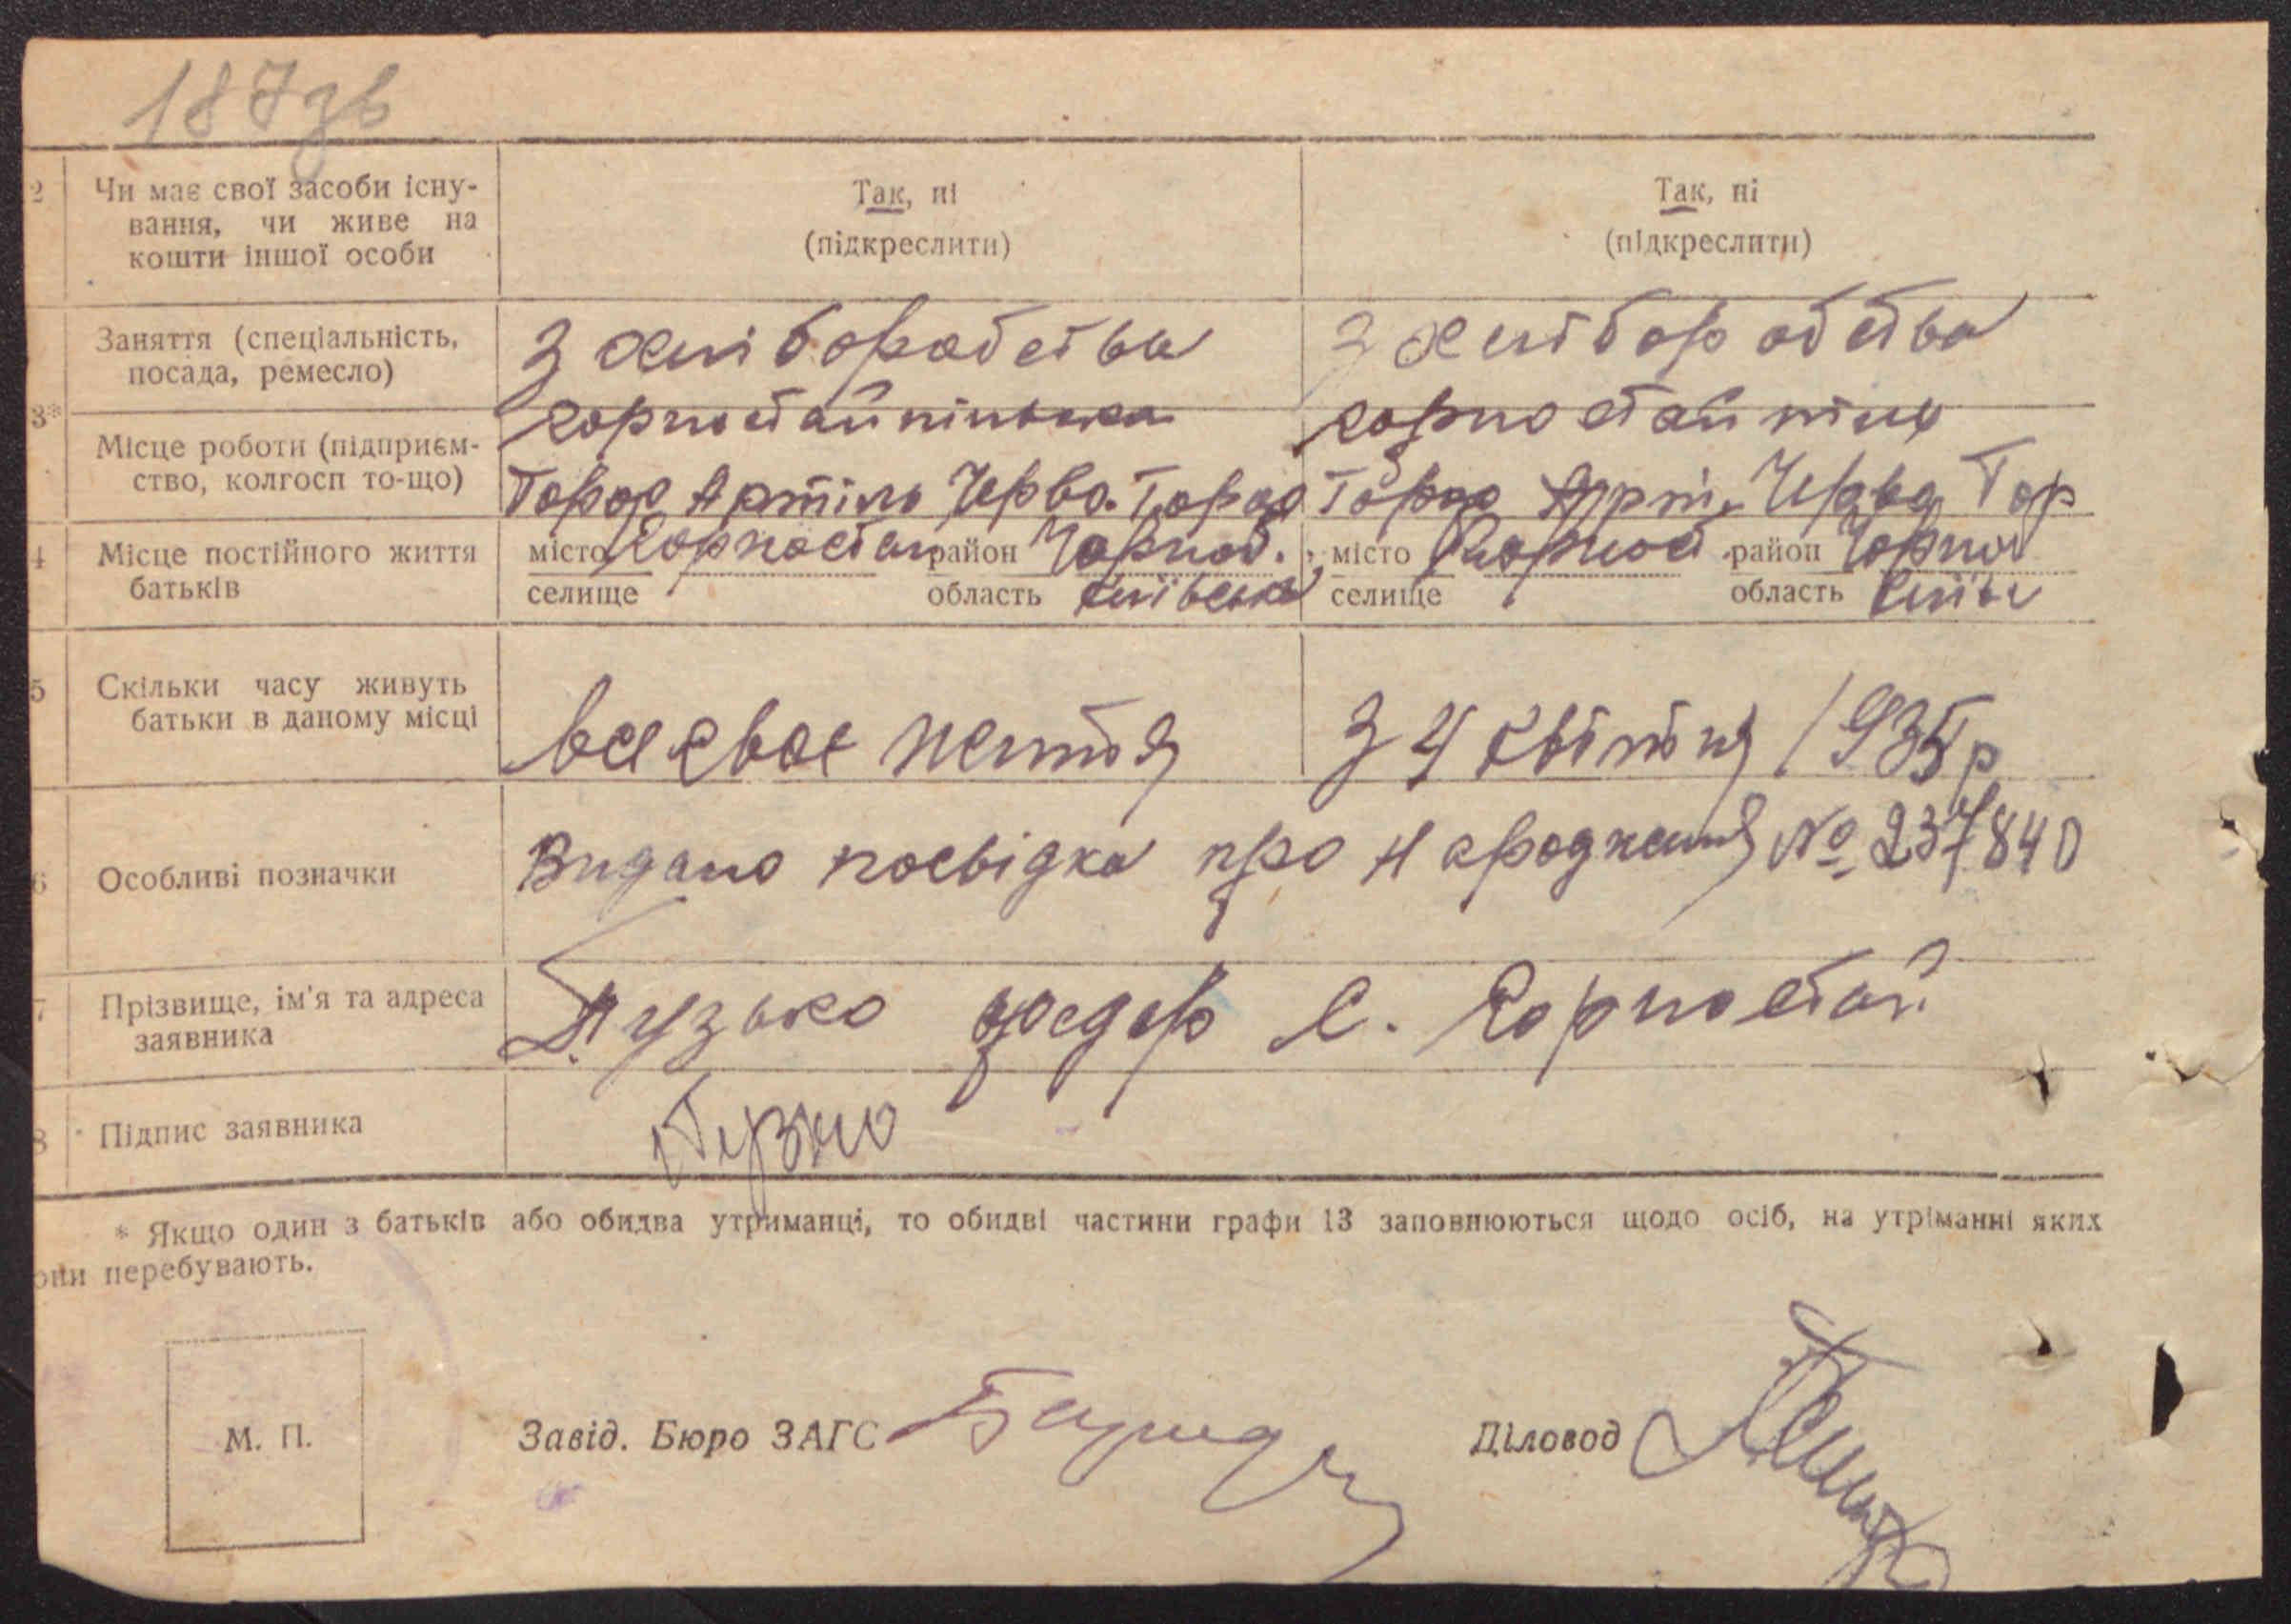 187зв
2 Чи має свої засоби існу-
вання, чи живе на
кошти іншої особи
Так, ні
(підкреслити)
Так, ні
(підкреслити)
Заняття (спеціальність,
посада, ремесло)
З хліборобства
З хліборобства
3*
Місце роботи (підприєм-
ство, колгосп то-що)
горностайпільська
Город Артіль Черво. Город
горностайпіль
Город Арті. Черво Гор
4 Місце постійного життя
батьків
місто Горностай район Чорноб.
селище область Київська
місто Горност район Чорноб
селище область Київ
5 Скільки часу живуть
батьки в даному місці
все своє життя
З 4 квітня 1935 р
6 Особливі позначки
Видано посвідка про народження № 237840
7 Прізвище, ім'я та адреса
заявника
Пузько Федор С. Горностай
8 Підпис заявника
Пузько
* Якщо один з батьків або обидва утриманці, то обидві частини графи 13 заповнюються щодо осіб, на утріманні яких
они перебувають.
М. П.
Завід. Бюро ЗАГС
Діловод